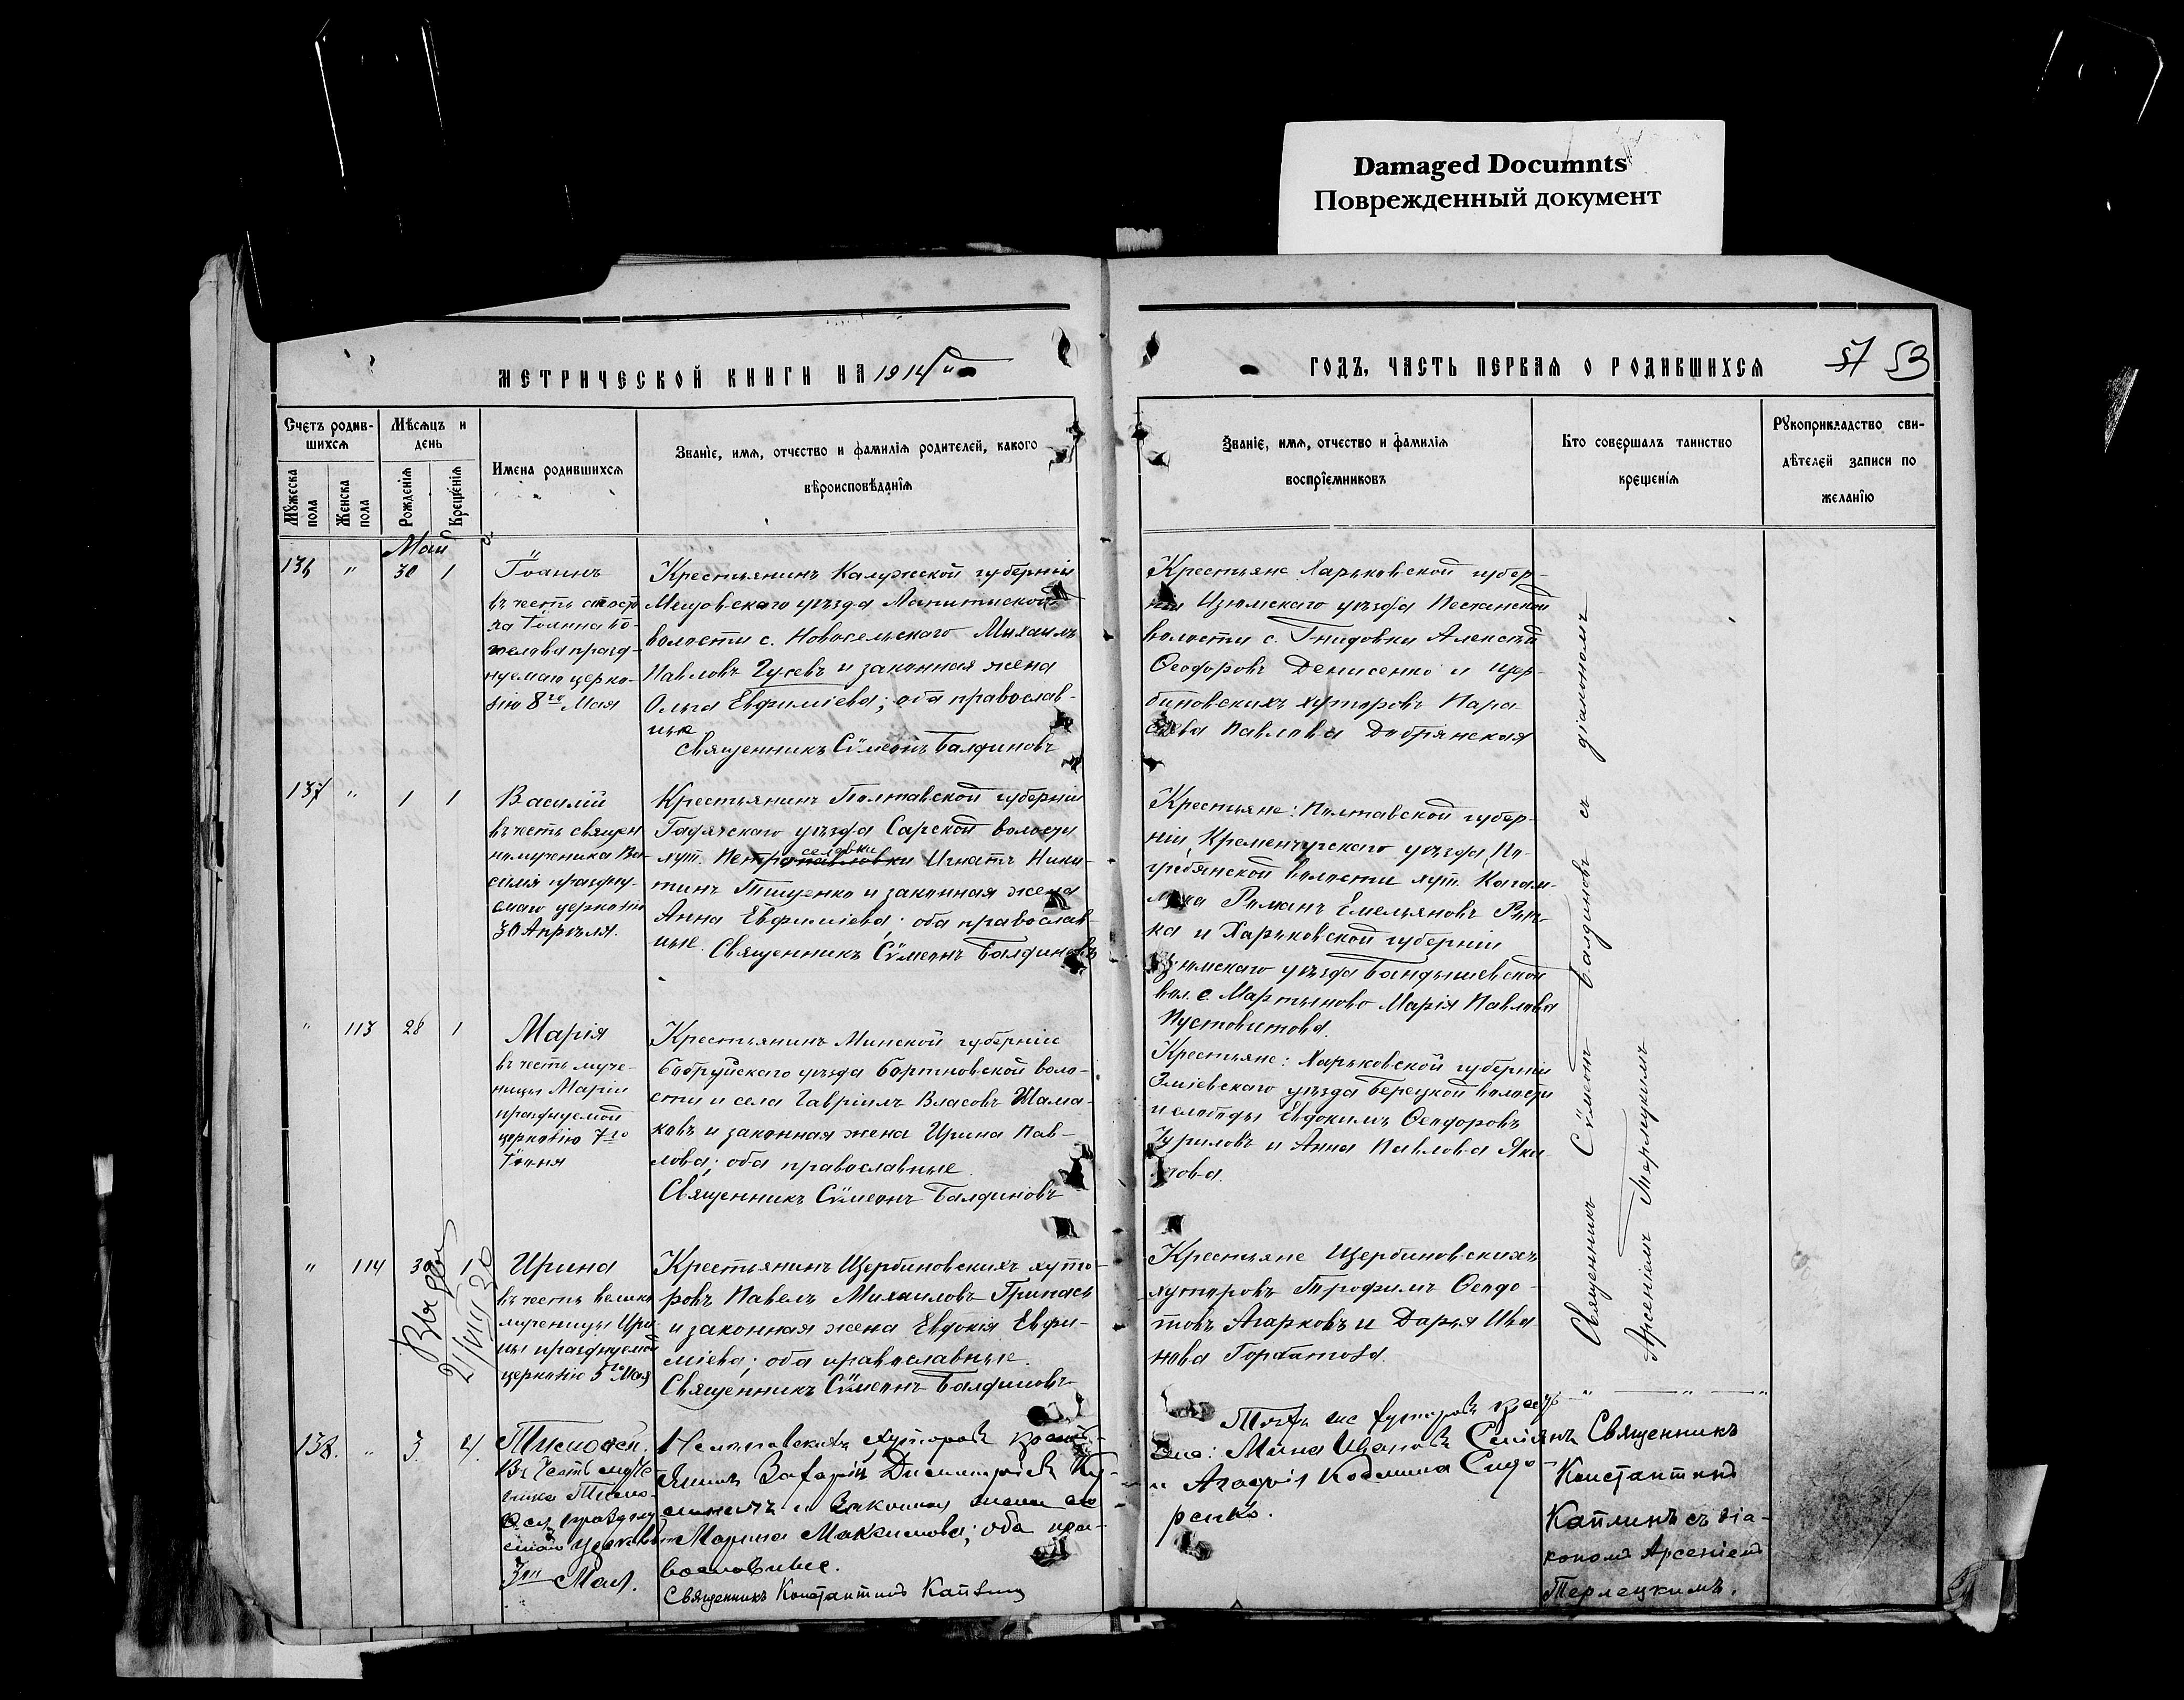 Damaged Documnts
Поврежденный документ
МЕТРИЧЕСКОЙ КНИГИ НА 1914
ГОДЪ, ЧАСТЬ ПЕРВАЯ О РОДИВШИХСЯ
57 53
Счетъ родив-
шихся
Мѣсяцъ и
день
Мужеска
пола
Женска
пола
Рожденія
Крещенія
Имена родившихся
Званіе, имя, отчество и фамилія родителей, какого
вѣроисповѣданія
Званіе, имя, отчество и фамилія
воспріемниковъ
Кто совершалъ таинство
крещенія
Рукоприкладство сви-
дѣтелей записи по
желанію
Май
136 " 30 1
Іоаннъ
въ честь
празд-
нуемаго церко-
вію 8го Мая
Крестьянинъ Калужской губерніи
Мещовскаго уѣзда
волости с. Новосельскаго Михаилъ
Павловъ Гусевъ и законная жена
Ольга Евфиміева; оба православ-
ные
Священникъ Сѵмеонъ Балдиновъ
Крестьяне Харьковской губер-
ніи Изюмскаго уѣзда Песчанской
волости с. Гнидовки Алексѣй
Ѳеодоровъ Денисенко и Щер-
биновскихъ хуторовъ Пара-
скева Павлова Добрянская
137 " 1 1
Василій
въ честь священ-
номученика Ва-
силія праздну-
емаго церковію
30 Апрѣля.
Крестьянинъ Полтавской губерніи
Гадячскаго уѣзда Сарской волости
хут. Петроселовки Игнатъ Ники-
тинъ Тищенко и законная жена
Анна Евфиміева; оба православ-
ные. Священникъ Сѵмеонъ Балдиновъ
Крестьяне: Полтавской губер-
ніи, Кременчугскаго уѣзда, По-
гребянской волости хут.
Романъ Емельяновъ
и Харьковской губерніи
Изюмскаго уѣзда Бандышевской
вол. с. Мартыново Марія Павлова
Пустовитова.
" 113 28 1
Марія
въ честь муче-
ницы Маріи
празднуемой
церковію 7го
Іюня
Крестьянинъ Минской губерніи
Бобруйскаго уѣзда Бортновской воло-
сти и села Гавріилъ Власовъ Шама-
ковъ и законная жена Ирина Пав-
лова; оба православные.
Священникъ Сѵмеонъ Балдиновъ
Крестьяне: Харьковской губерніи
Зміевскаго уѣзда Берецкой волости
и слободы Евдокимъ Ѳеодоровъ
Чуриловъ и Анна Павлова
" 114 30 1
Ирина
въ честь велико-
мученицы Ири-
ны празднуемой
церковію 5го Мая
Крестьянинъ Щербиновскихъ хуто-
ровъ Павелъ Михаиловъ Гринась
и законная жена Евдокія Евфи-
міева; оба православные.
Священникъ Сѵмеонъ Балдиновъ
Крестьяне Щербиновскихъ
хуторовъ Трофимъ Ѳеодо-
товъ Агарковъ и Дарья Ива-
нова Горбатова.
21/VII 30
Священникъ Сѵмеонъ Балдиновъ съ діакономъ
Арсеніемъ Терлецкимъ
138. " 3. 4.
Тимоѳей.
Въ честь муче-
ника Тимо-
ѳея праздну-
емаго церковію
3го Мая.
хуторовъ
Захарій Димитріевъ
и законная жена его
Марина Максимова; оба пра-
вославные.
Священникъ Константинъ Каплинъ
Тѣхъ же хуторовъ
Мина Ивановъ
и Агафія
ренко.
Священникъ
Константинъ
Каплинъ съ діа-
кономъ Арсеніемъ
Терлецкимъ.